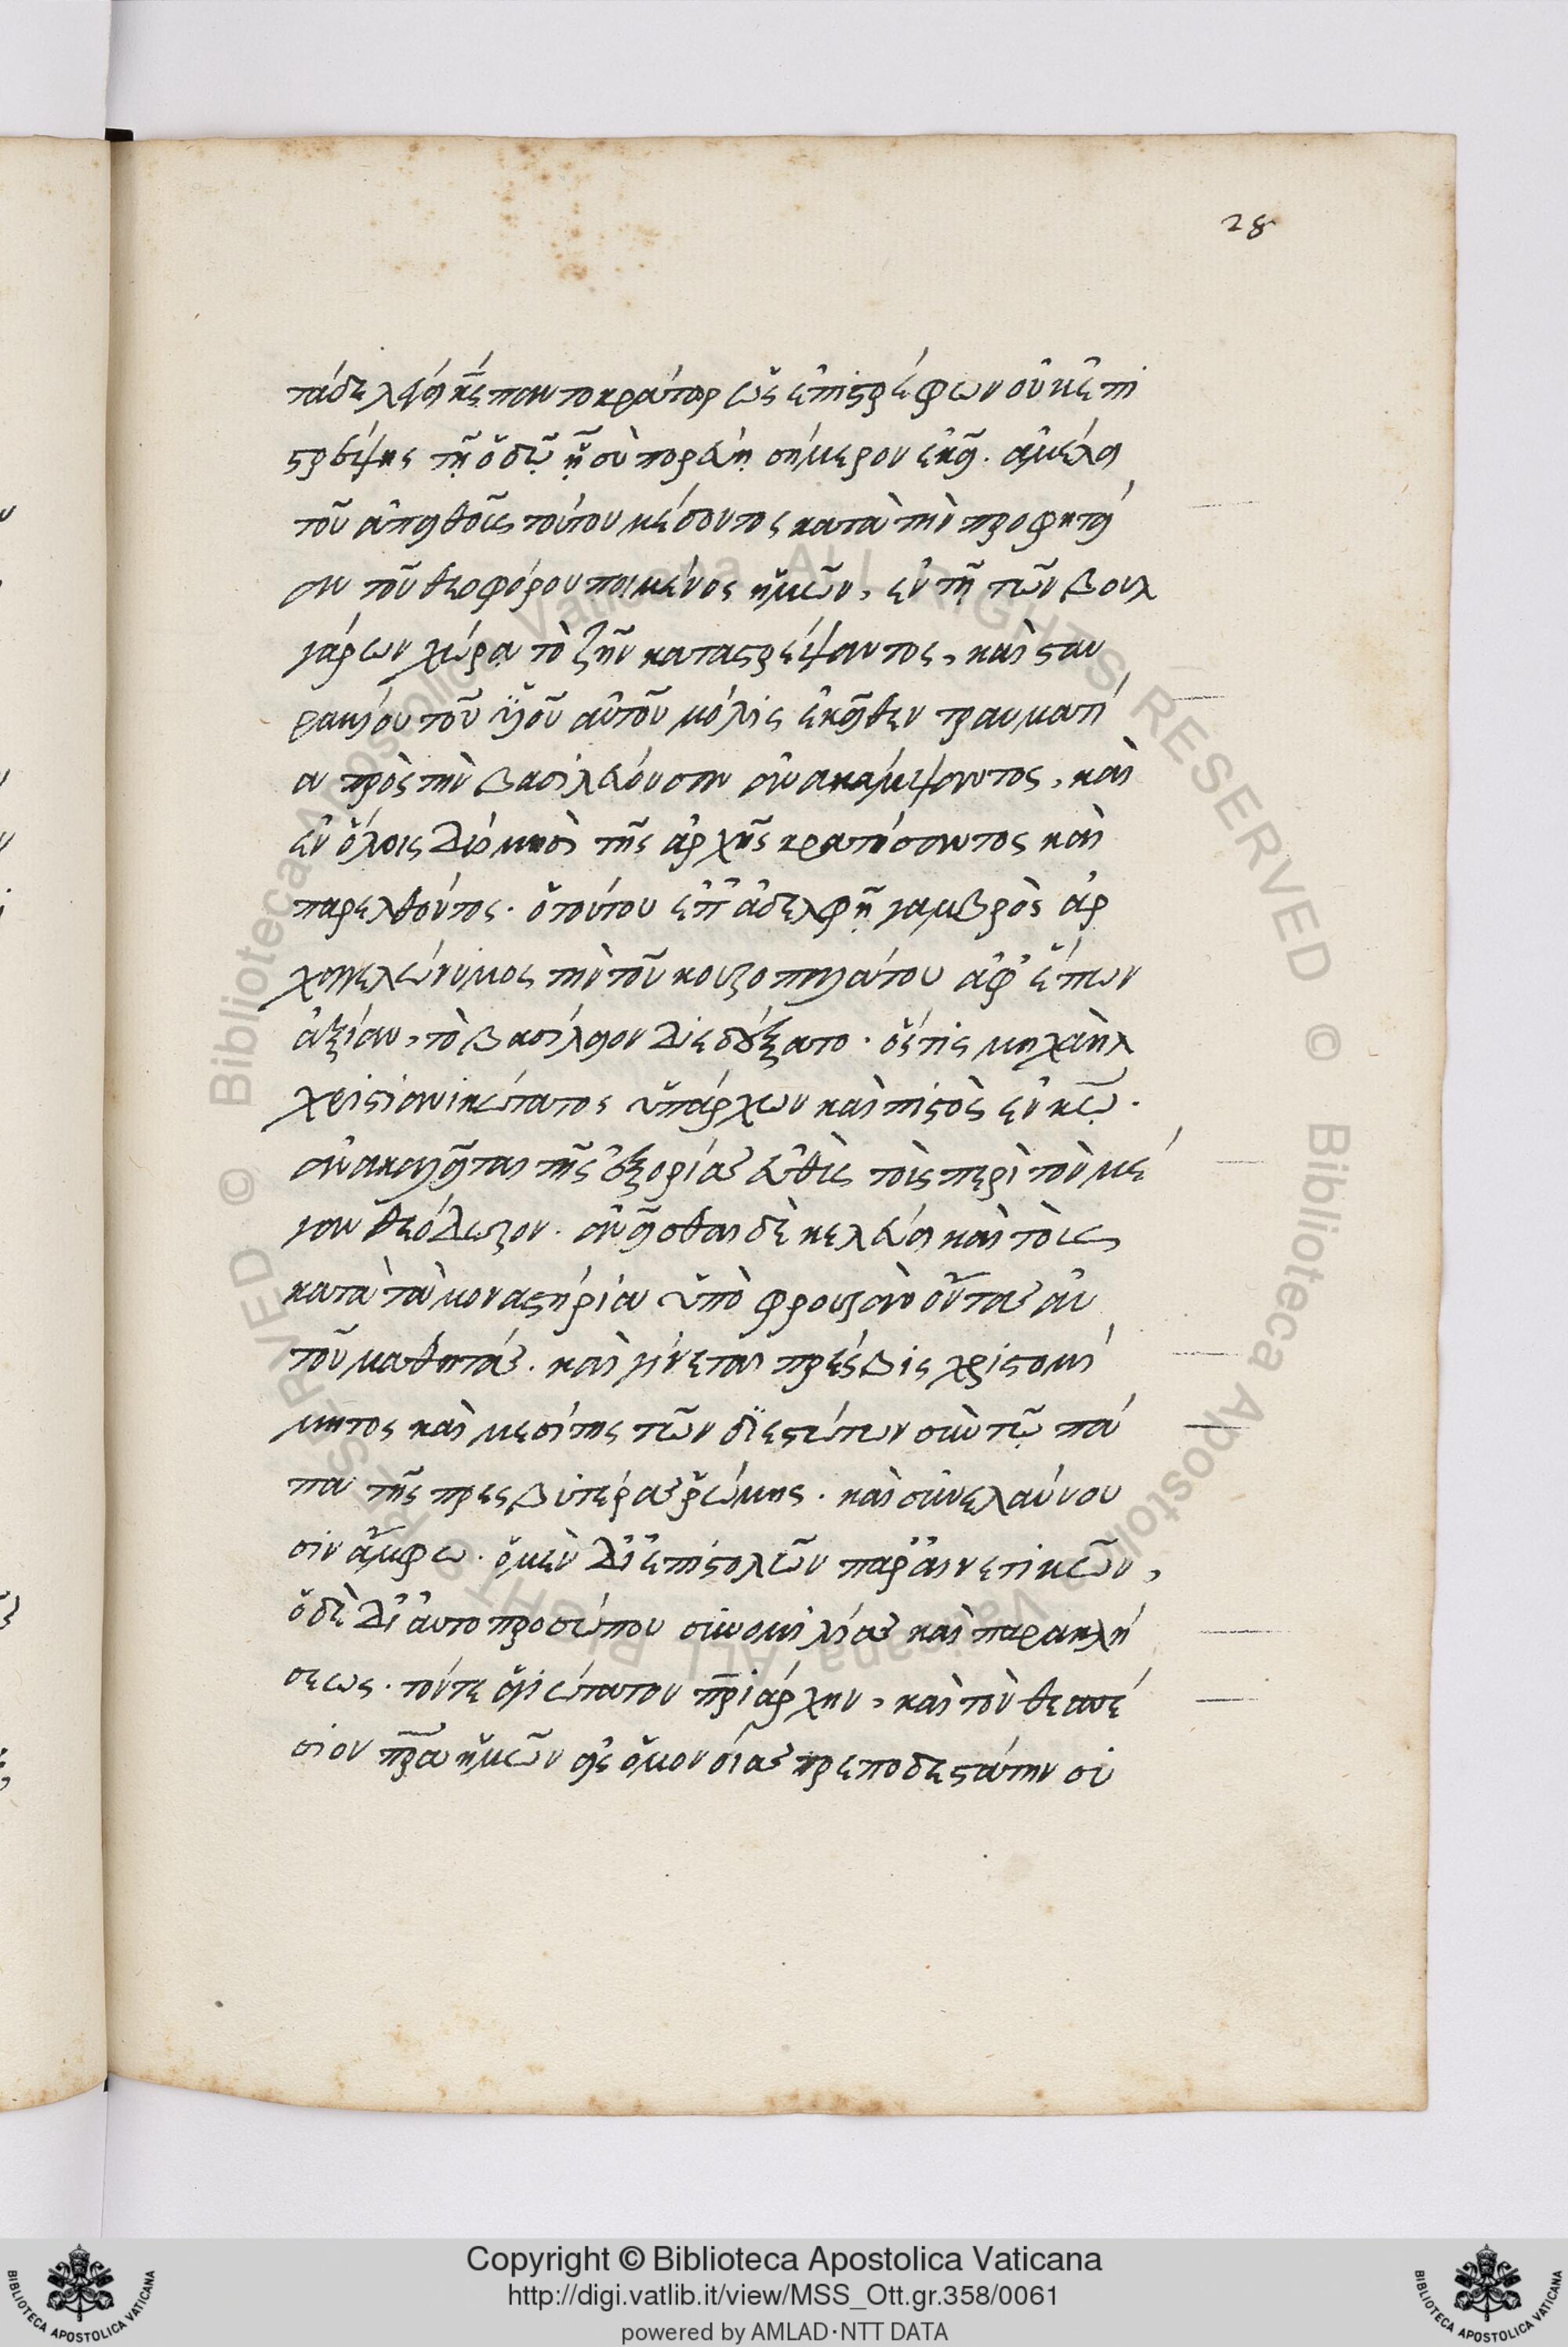 28
τάδε λέγει κ̅ς̅ παντοκράτωρ ὡς ἐπιστρέφων οὐκ ἐπι
στρέψης τῆ ὁδῶ ἧ σὺ πορεύη σήμερον ἐκεῖ. ἀμέλει
τοῦ ἀπειθοῦς τούτου πεσόντος κατὰ τὴν προφητεί
αν τοῦ θεοφόρου ποιμένος ἡμῶν, ἐν τῆ τῶν Βουλ
γάρων χώρα τὸ ζῆν καταστρέψαντος, καὶ σταυ
ρακίου τοῦ υἱοῦ αὐτοῦ μόλις ἐκεῖθεν τραυματί
α πρὸς τὴν βασιλεύουσαν ἀνακάμψαντος, καὶ
ἐν ὅλοις δυὸ μησὶ τῆς ἀρχῆς κρατήσαντος καὶ
παρελθόντος. ὁ τούτου ἐπ' ἀδελφῆ γαμβρὸς ἀρ
χαγγελώνυμος τὴν τοῦ κουροπαλάτου ἀφέπων
ἀξίαν, τὸ βασίλειον διεδέξατο. ὅστις μιχαὴλ
χριστιανικώτατος ὑπάρχων καὶ πιστὸς ἐν κ̅ω̅.
ἀνακαλεῖται τῆς ἐξορίας εὐθὺς τοῖς περὶ τὸν μέ
γαν θεόδωρον. ἀνεῖσθαι δὲ κελεύει καὶ τοὺς
κατὰ τὰ μοναστήρια ὑπὸ φρουρὰν ὄντας αὐ
τοῦ μαθητάς. καὶ γίνεται πρέσβις χριστομί
μητος καὶ μεσίτης τῶν διεστώτων σὺν τῶ πά
πα τῆς πρεσβυτέρας ῥώμης. καὶ συνελαύνου
σιν ἄμφω. ὁ μὲν δι' ἐπιστολῶν παραινετικῶν,
ὁ δὲ δι' αὐτοπροσώπου συνομιλίας καὶ παρακλή
σεως. τόν τε ἁγιώτατον π̅ρ̅ιάρχην, καὶ τὸν θεσπέ
σιον π̅ρ̅α ἡμῶν εἰς ὁμονοίας πρεποδεστάτην σύ
Copyright © Biblioteca Apostolica Vaticana
http://digi.vatlib.it/view/MSS_Ott.gr.358/0061
powered by AMLAD·NTT DATA